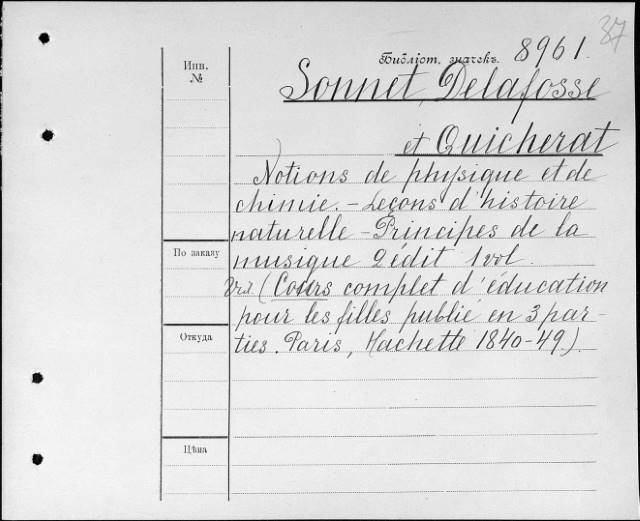 37
Библіот. значекъ. 8961.
Инв.
№
Sonnet, Delafosse
et Quicherat
Notions de physique et de
chimie. - Leçons d'histoire
naturelle - Principes de la
musique 2 édit 1 vol.
(Cours complet d'éducation
pour les filles publié en 3 par-
ties. Paris, Hachette 1840-49.)
По заказу
Откуда
Цѣна